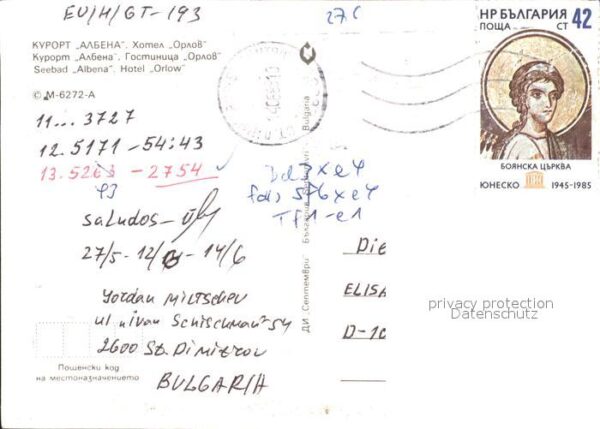 EU/H/GT-193
27c
НР БЪЛГАРИЯ 42
ПОЩА СТ
КУРОРТ „АЛБЕНА". Хотел „Орлов"
Курорт „Албена". Гостиница „Орлов"
Seebad „Albena", Hotel „Orlow"
© М-6272-А
11...3727
12.5171-54:43
13.5263-2754
43
БОЯНСКА ЦЪРКВА
ЮНЕСКО 1945-1985
saludos-
27/5-12/6-14/6
Yordan Miltschev
ul „Ivan Schischman" 54
2600 St. Dimitrov
BULGARIA
Пощенски код
на местоназначението
ДИ „Септември"
Bulgaria
Die
ELISA
D-10
privacy protection
Datenschutz